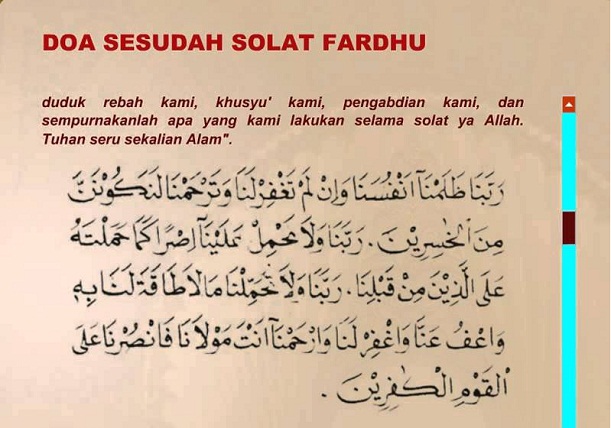 DOA SESUDAH SOLAT FARDHU
duduk rebah kami, khusyu' kami, pengabdian kami, dan
sempurnakanlah apa yang kami lakukan selama solat ya Allah.
Tuhan seru sekalian Alam".
رَبَّنَا ظَلَمْنَآ اَنْفُسَنَا وَاِنْ لَمْ تَغْفِرْلَنَا وَتَرْحَمْنَا لَنَكُوْنَنَّ
مِنَ الْخٰسِرِيْنَ. رَبَّنَا وَلَا تَحْمِلْ عَلَيْنَآ اِصْرًا كَمَا حَمَلْتَهُ
عَلَى الَّذِيْنَ مِنْ قَبْلِنَا. رَبَّنَا وَلَا تُحَمِّلْنَا مَالَا طَاقَةَ لَنَا بِهِ
وَاعْفُ عَنَّا وَاغْفِرْ لَنَا وَارْحَمْنَآ اَنْتَ مَوْلَانَا فَانْصُرْنَا عَلَى
الْقَوْمِ الْكٰفِرِيْنَ.